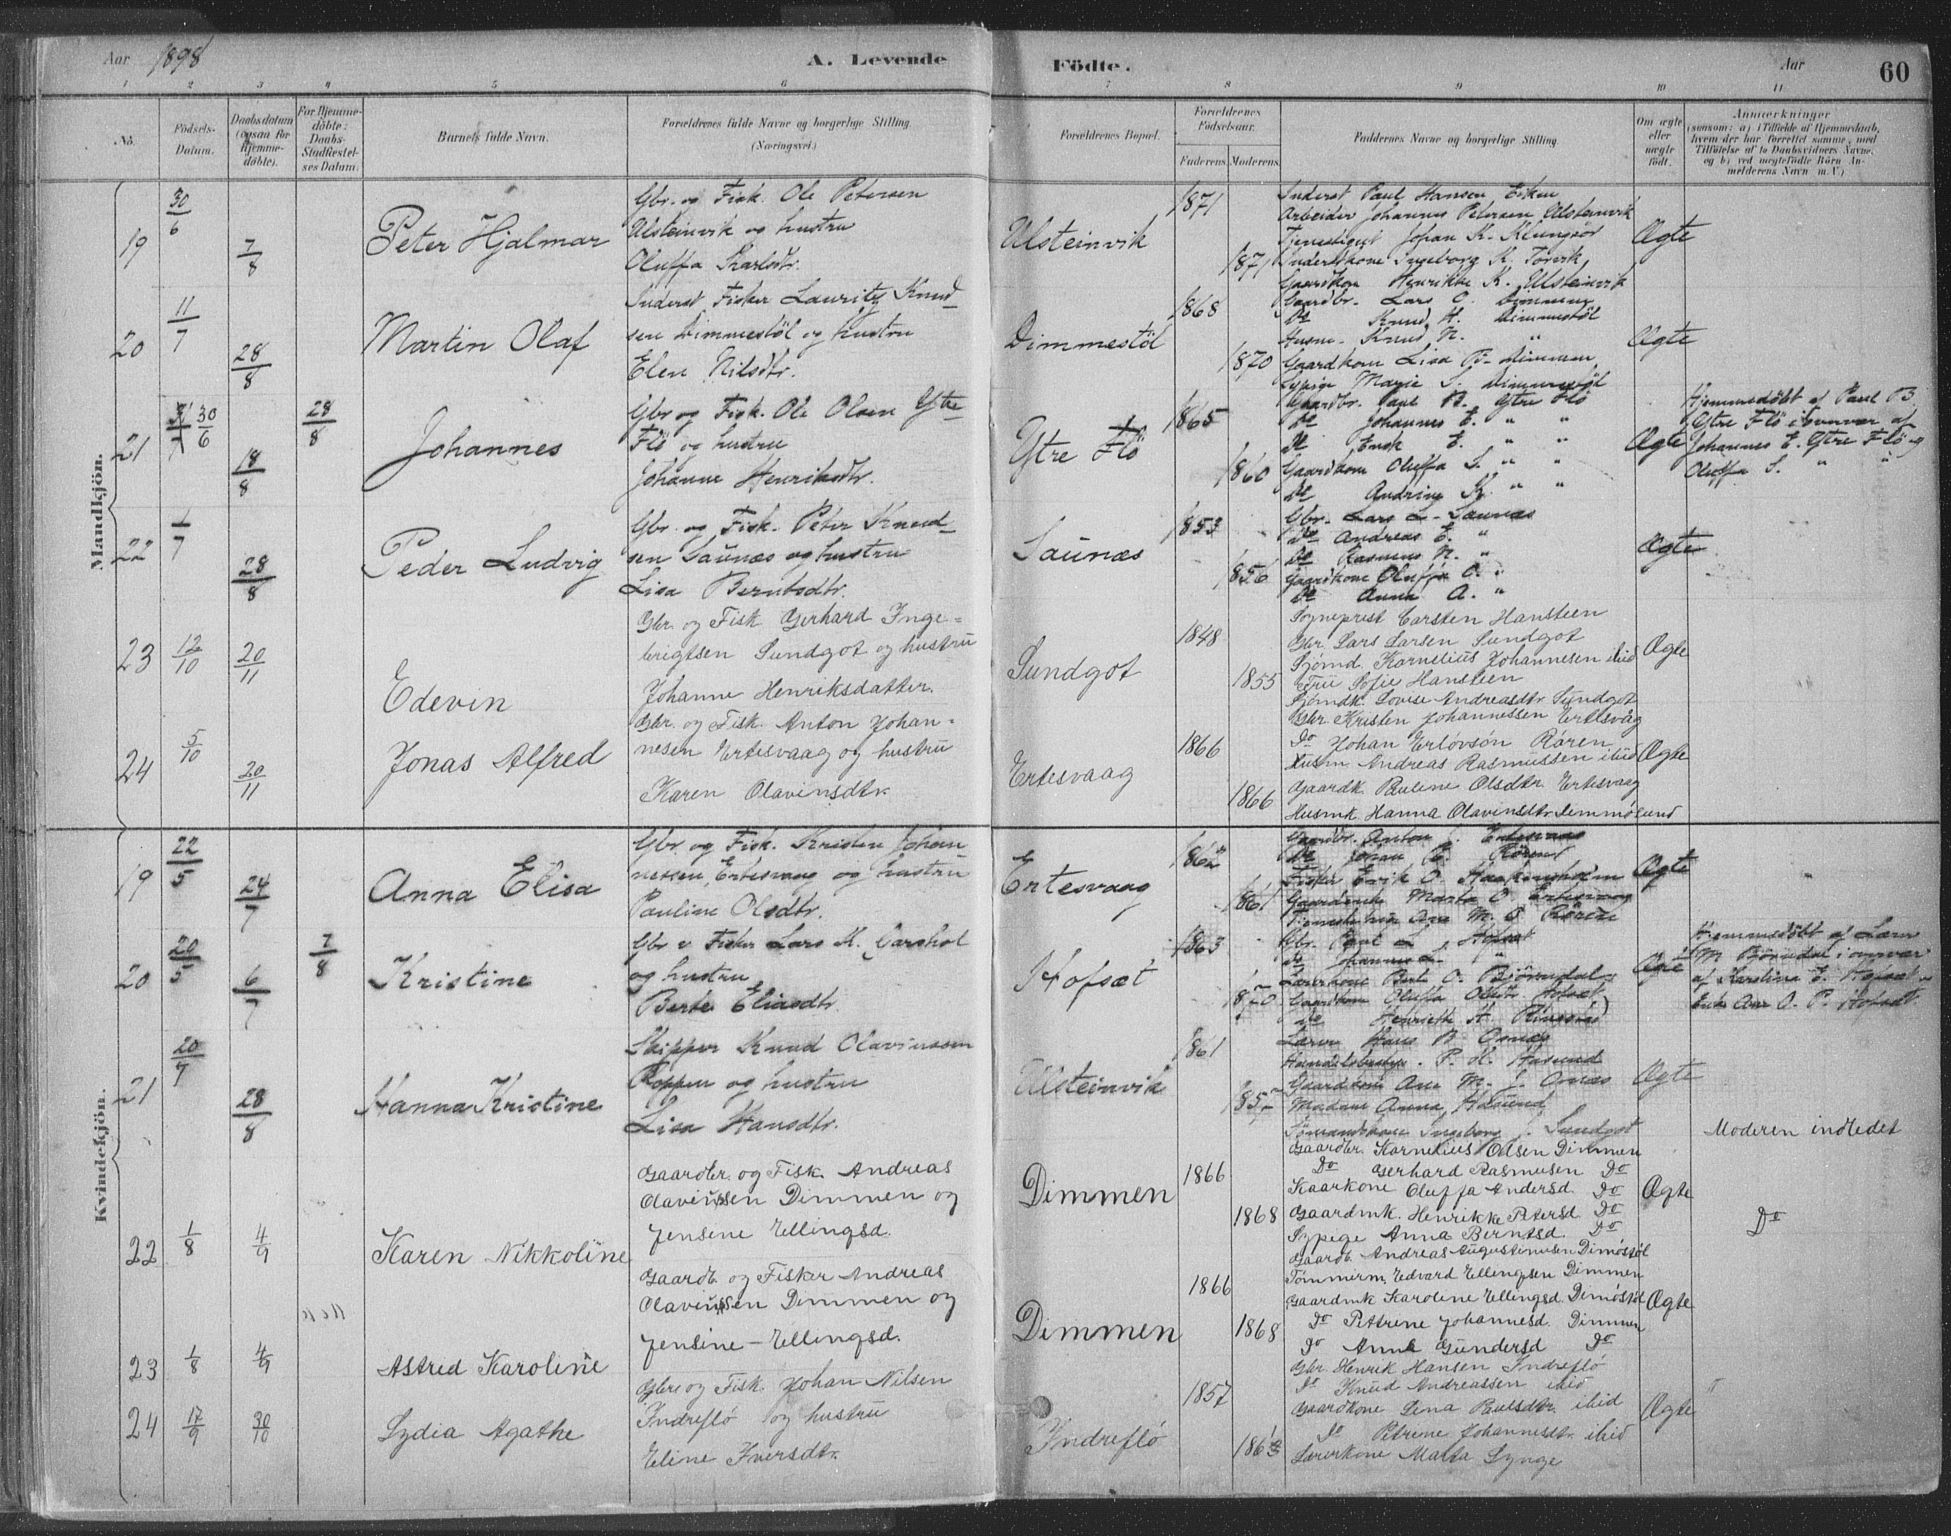 Aar 1898 A. Levende Födte. Aar 60
1 2 3 4 5 6 7 8 9 10 11
No. Födsels-Datum. Daabsdatum (ogsaa for Hjemmedöbte). For Hjemmedöbte: Daabs-Stadfæstelses Datum. Barnets fulde Navn. Forældrenes fulde Navne og borgerlige Stilling (Næringsvei.) Forældrenes Bopæl. Forældrenes Födselsaar. Faderens. Moderens. Faddernes Navne og borgerlige Stilling Om ægte eller uægte födt. Anmærkninger
(saasom: a) i Tilfælde af Hjemmedaab,
hvem der har forrettet samme, med
Tilföielse af to Daabsvidners Navne,
og b) ved uegtefödte Börn An-
melderens Navn m. V.)
Mandkjön.
19 30/6 7/8 Peter Hjalmar
Gbr. og Fisk. Ole Petersen
Ulsteinvik og hustru
Oluffa Karlsdtr.
Ulsteinvik 1871 1871
Inderst Paul Hansen Eiken
Arbeider Johannes Petersen Ulsteinvik
Johan K. Klungsör
Inderstkone Ingeborg K. Torvik
Henrikke K. Ulsteinvik
Ægte
20 11/7 28/8 Martin Olaf
Inderst Fisker Laurits Knud-
sen Dimmestöl og hustru
Elen Nilsdtr.
Dimmestöl 1868 1870
Gaardbr. Lars O. Dimmen
Do Knud H. Dimmestöl
Husm. Knud N. "
Gaardkone Lisa P. Dimmen
Marie S. Dimmestöl
Ægte
21 30/6 18/8 28/8 Johannes
Gbr og Fisk. Ole Olsen Ytre
Flö og hustru
Johanne Henriksdtr.
Ytre Flö 1865 1860
Gaardbr. Paul B. Ytre Flö
Do Johannes E. " "
Do E. " "
Gaardkone Oluffa S. " "
Do Andrine K. " "
Ægte
Hjemmedöbt af Paul B.
Ytre Flö i overvær af
Johannes E. Ytre Flö og
Oluffa S. " "
22 1/7 28/8 Peder Ludvig
Gbr. og Fisk. Peter Knud-
sen Saunæs og hustru
Lisa Berntsdtr.
Saunæs 1853 1856
Gbr. Lars L. Saunæs
Do Andreas E. "
Do Rasmus N. "
Gaardkone Oluffa O. "
Do Anna A. "
Ægte
23 12/10 20/11 Edevin
Gbr. og Fisk Gerhard Inge-
brigtsen Sundgot og hustru
Johanne Henriksdatter.
Sundgot 1848 1855
Sogneprest Carsten Hansteen
Gbr. Lars Larsen Sundgot
Sjömd. Kornelius Johannesen ibid
Frü Sofie Hansteen
Sjömdk. Lovise Andreasdtr Sundgot
Ægte
24 5/10 20/11 Jonas Alfred
Gbr. og Fisk. Anton Johan-
nesen Ertesvaag og hustru
Karen Olavinsdtr.
Ertesvaag 1866 1866
Gbr Kristen Johannessen Ertesvåg
Do Johan Erlovsön Rören
Husm. Andreas Rasmussen ibid
Gaardk. Pauline Olsdtr Ertesvaag
Husmk. Hanna Olavinsdtr
Ægte
Kvindekjön.
19 22/5 24/7 Anna Elisa
Gbr. og Fisk. Kristen Johan-
nessen Ertesvaag og hustru
Pauline Olsdtr.
Ertesvaag 1862 1861
Gaardbr. Anton J. Ertesvaag
Do Johan E.
Fisker Erik O.
Marta O. Ertesvaag
Ane M.
Ægte
20 20/5 6/7 7/8 Kristine
Gbr. Fisker Lars K. Garshol
og hustru
Berte Eliasdtr.
Hofsæt 1863 1870
Gbr. Paul L. Hofsæt
Do Johannes L. "
Lærerkone Berte O. Björndal
Gaardkone Oluffa Hofsæt
Do Henriette A.
Ægte
Hjemmedöbt af Lærer
M Björndal i overvær
af Karoline E. Hofsæt
Ane O. P. Hofsæt
21 20/7 28/8 Hanna Kristine
Skipper Knud Olavinssen
og hustru
Lisa Hansdtr.
Ulsteinvik 1861 1852
Lærer Hans B. Osnæs
P. H. Hasund
Gaardkone Ane M. J. Osnæs
Madam Anna Hasund
Sömandskone Ingeborg J. Sundgot
Ægte
Moderen indledet
22 1/8 4/9 Karen Nikkoline
Gaardbr. og Fisk. Andreas
Olavinssen Dimmen og
Jensine Ellingsd.
Dimmen 1866 1868
Gaardbr. Kornelius Olsen Dimmen
Do Gerhard Rasmusen Do
Kaarkone Oluffa Andersd. Do
Gaardmk. Henrikke Petersd. Do
Sypige Anna Berntsd. Do
Ægte
Do
23 1/8 4/9 Astred Karoline
Gaardb. og Fisker Andreas
Olavinssen Dimmen og
Jensine Ellingsd.
Dimmen 1866 1868
Gaardb. Andreas Augustinusen Dimöstöl
Tömmerm. Edvard Ellingsen Dimmen
Gaardmk Karoline Ellingsd. Dimöstöl
Do Petrine Johannesd. Dimmen
Do Anne Gundersd Do
Ægte
24 17/9 30/10 Lydia Agathe
Gbr. og Fisk. Johan Nilsen
Indreflö og hustru
Eline Iversdtr.
Indreflö 1857 1863
Gbr. Henrik Hansen Indreflö
Do Knud Andreassen ibid
Gaardkone Lena Paulsdtr. ibid
Do Petrine Johannesdtr. ibid
Lærerkone Malta Synge
Ægte
"